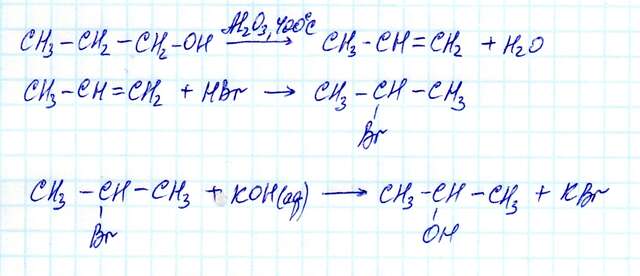 CH₃-CH₂-CH₂-OH Al₂O₃, 400°C → CH₃-CH=CH₂ + H₂O
CH₃-CH=CH₂ + HBr → CH₃-CH-CH₃
Br
CH₃-CH-CH₃ + KOH(aq) → CH₃-CH-CH₃ + KBr
Br OH